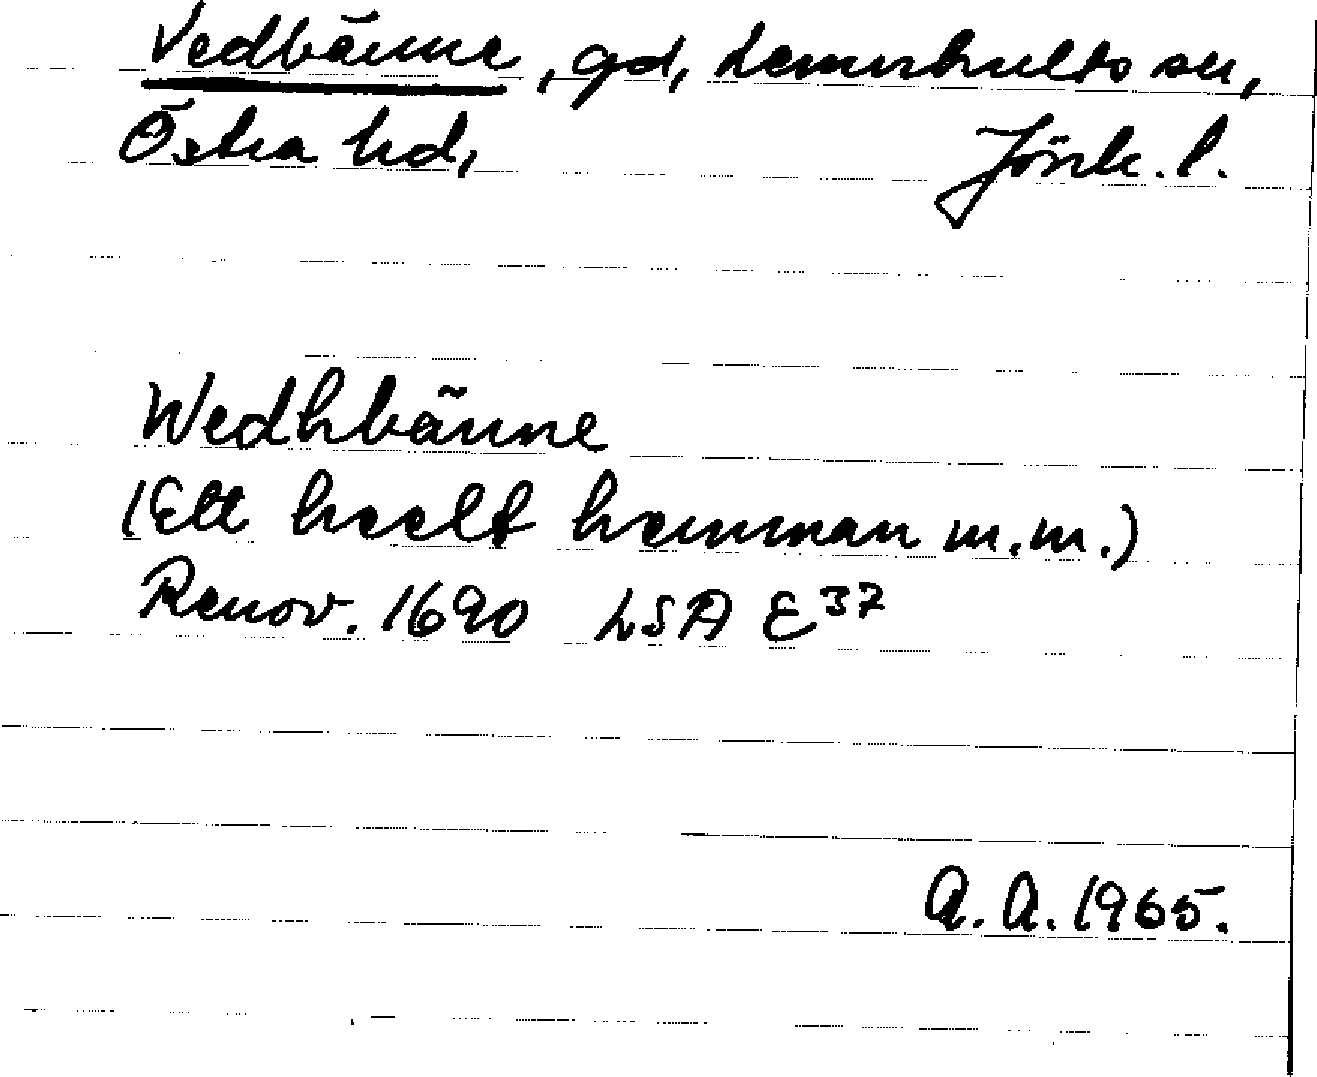 Vedbänne, gd, Lemnhults sn,
Östra hd, Jönk. l.
Wedhbänne
(Ett heelt hemman m.m.)
Renov. 1690 LSA E37
A. A. 1965.